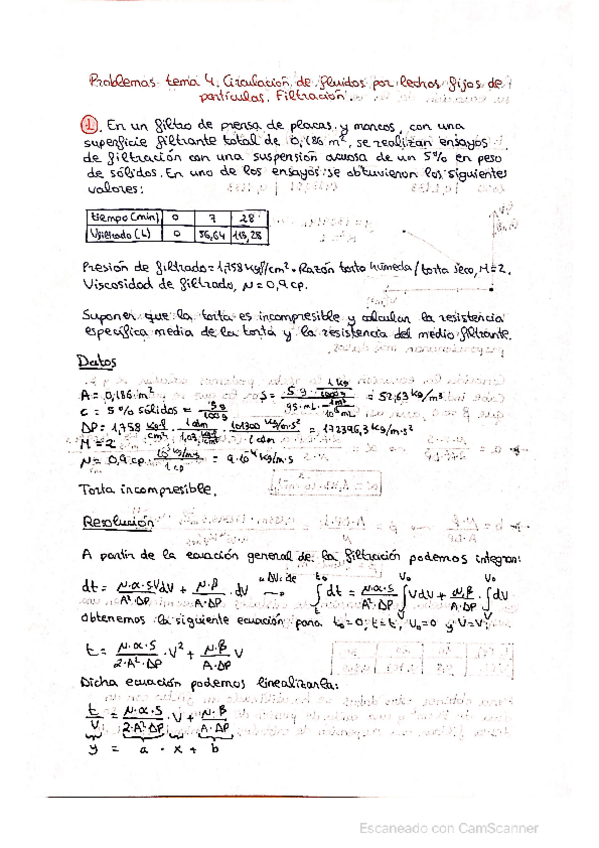 Problemas tema 4. Circulación de fluidos por lechos fijos de
partículas. Filtración.
1. En un filtro de prensa de placas y marcos, con una
superficie filtrante total de 0,186 m², se realizan ensayos
de filtración con una suspensión acuosa de un 5% en peso
de sólidos. En uno de los ensayos se obtuvieron los siguientes
valores:
tiempo (min) 0 7 28
Vfiltrado (L) 0 56,64 113,28
Presión de filtrado = 1,758 kgf/cm². Razón torta húmeda / torta seca, M=2.
Viscosidad de filtrado, μ = 0,9 cp.
Suponer que la torta es incompresible y calcular la resistencia
específica media de la torta y la resistencia del medio filtrante.
Datos
A = 0,186 m² S = 5 g · 1 kg/1000 g / 95 mL · 1 m³/10⁶ mL = 52,63 kg/m³
C = 5% sólidos = 5 g/100 g
ΔP = 1,758 kgf/cm² · 1 atm/1,03 · 101300 kg/m·s²/1 atm = 172396,3 kg/m·s²
M = 2
μ = 0,9 cp · 10⁻³ kg/m·s/1 cp = 9·10⁻⁴ kg/m·s
Torta incompresible.
Resolución
A partir de la ecuación general de la filtración podemos integrar:
dt = μ·α·S·VdV/A²·ΔP + μ·β/A·ΔP · dV → ∫ dt = μ·α·S/A²·ΔP ∫ VdV + μ·β/A·ΔP · ∫ dV
Obtenemos la siguiente ecuación para t₀=0; t=t, V₀=0 y V=V:
t = μ·α·S/2·A²·ΔP · V² + μ·β/A·ΔP V
Dicha ecuación podemos linealizarla:
t/V = μ·α·S/2·A²·ΔP · V + μ·β/A·ΔP
y = a · x + b
Escaneado con CamScanner